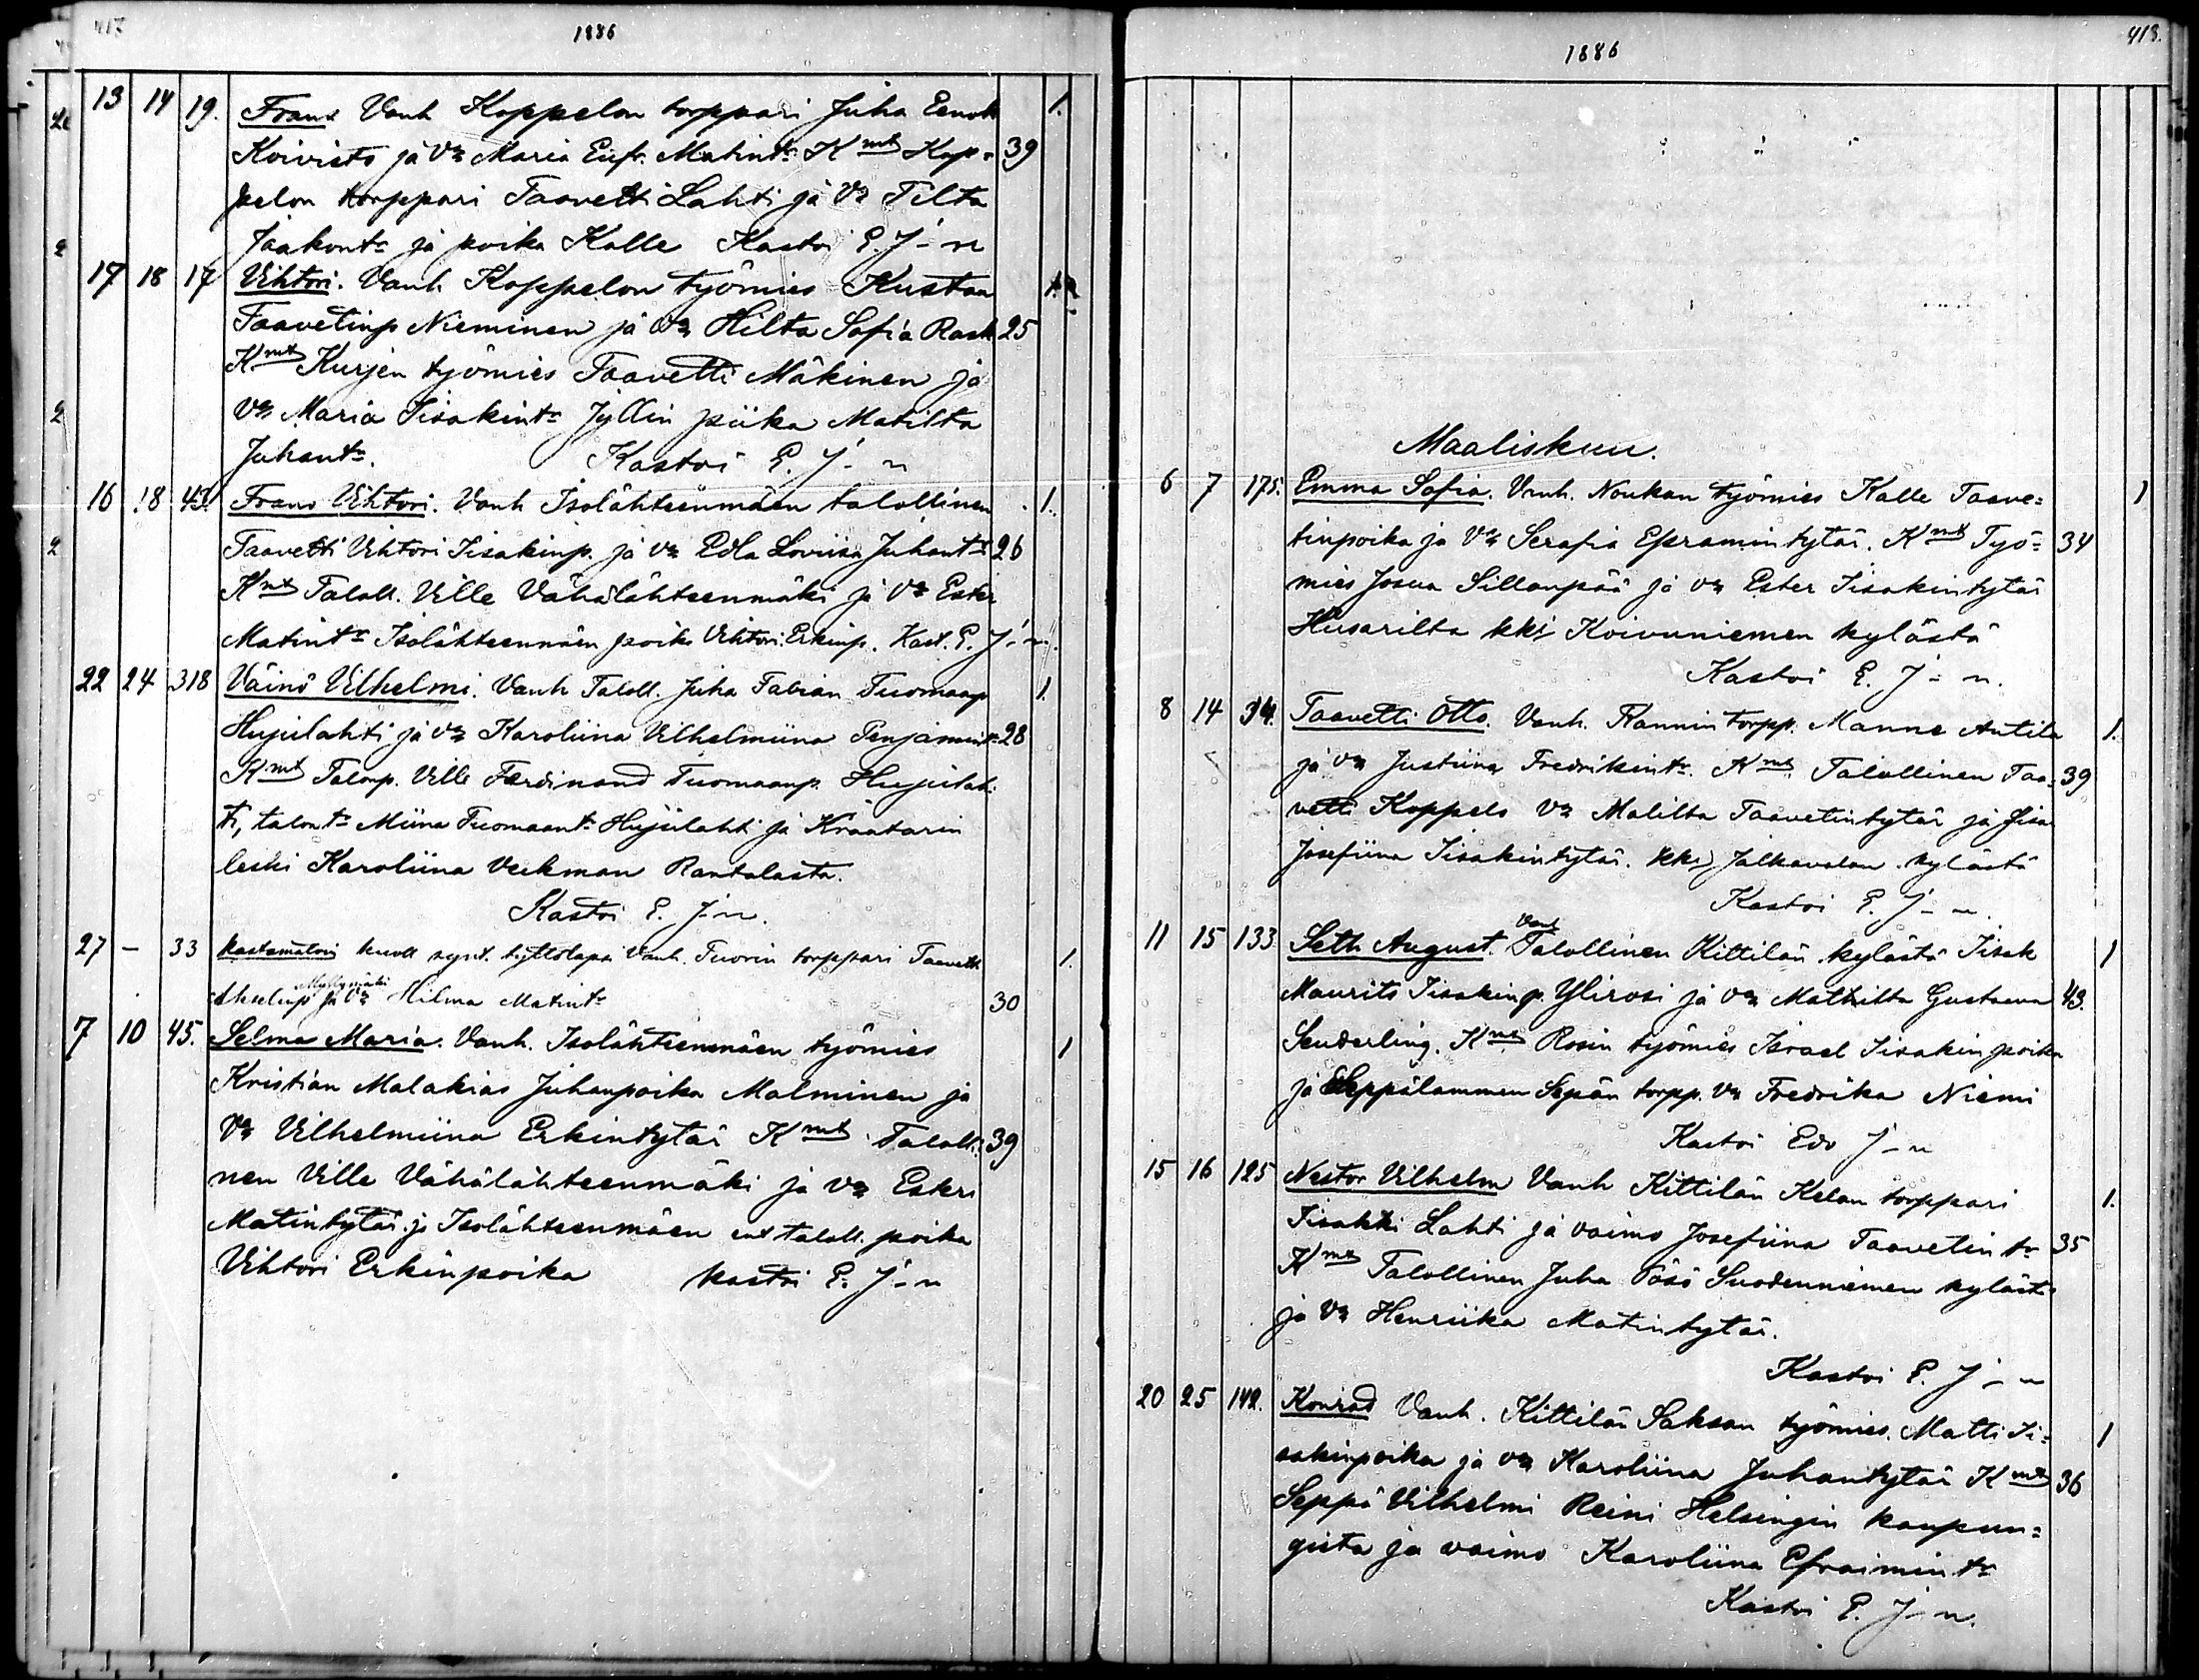 417
1886
13 14 19. Frans Vanh Koppelon torppari Juha Eenok 1.
Koivisto ja Vo Maria Eufr. Matint: Kmt Kop= 39
pelon torppari Taavetti Lahti ja Vo Tilta
Jaakont: ja poika Kalle Kastoi E. J-n
17 18 17 Vihtori. Vanh Koppelon työmies Kustaa
Taavetinp Nieminen ja Vo Hilta Sofia Rask 25
Kmt Kurjen työmies Taavetti Mäkinen ja
Vo Maria Iisakint: Jyllin piika Matilta
Juhant:. Kastoi E. J-n
16 18 43. Frans Vihtori. Vanh Isolähteenmäen talollinen 1.
Taavetti Vihtori Iisakinp. ja Vo Edla Loviisa Juhant: 26
Kmt Taloll. Ville Vähälähteenmäki ja Vo Ester
Matint: Isolähteenmäen poika Vihtori Erkinp. Kast. E. J-n.
22 24 318 Väinö Vilhelmi. Vanh Taloll. Juha Fabian Tuomaanp 1.
Hujulahti ja Vo Karoliina Vilhelmiina Penjamint: 28
Kmt Talonp. Ville Ferdinand Tuomaanp. Hujulah=
ti, talont: Miina Tuomaant: Hujulahti ja Kraatarin
leski Karoliina Veckman Rantalasta.
Kastoi E. J-n.
27 – 33 Kastamatoin kuoll synt. tyttölapsi Vanh. Tuorin torppari Taavetti 1.
Akselinp Myllymäki ja Vo Hilma Matint: 30
7 10 45. Selma Maria. Vanh. Isolähteenmäen työmies 1
Kristian Malakias Juhanpoika Malminen ja
Vo Vilhelmiina Erkintytär Kmt Taloll= 39
nen Ville Vähälähteenmäki ja Vo Esteri
Matintytär ja Isolähteenmäen ent taloll. poika
Vihtori Erkinpoika Kastoi E. J-n
418.
1886
Maaliskuu.
6 7 175. Emma Sofia. Vanh. Noukan työmies Kalle Taave= 1
tinpoika ja Vo Serafia Efraimintytär. Kmt Työ= 34
mies Josua Sillanpää ja Vo Ester Iisakintytär
Husarilta kki Koivuniemen kylästä
Kastoi E. J-n.
8 14 34. Taavetti Otto. Vanh. Rannin torpp. Manne Antila 1.
ja Vo Justiina Fredrikint:. Kmt Talollinen Taa= 39
vetti Koppelo Vo Malilta Taavetintytär ja
Josefiina Iisakintytär. kki Jalkavalan kylästä
Kastoi E. J-n.
11 15 133 Seth August. Vanh Talollinen Kittilän kylästä Iisak 1
Maurits Iisakinp. Ylirosi ja Vo Mathilta Gustaava 43.
Senderling. Kmt Rosin työmies Israel Iisakin poika
ja Seppälammen Sepän torpp. Vo Fredrika Niemi
Kastoi Edv J-n
15 16 125 Nestor Vilhelm Vanh Kittilän Kelan torppari 1.
Iisakki Lahti ja vaimo Josefiina Taavetin t: 35
Kmt Talollinen Juha Pösö Suodenniemen kyläst:
ja Vo Henriika Matintytär.
Kastoi E. J-n
20 25 142. Konrad Vanh. Kittilän Saksan työmies. Matti Ii= 1
sakinpoika ja Vo Karoliina Juhantytär Kmt 36
Seppä Vilhelmi Reini Helsingin kaupun=
gista ja vaimo Karoliina Efraimin t:
Kastoi E. J-n.